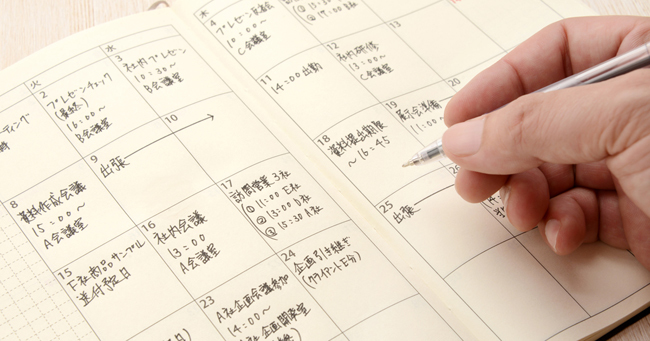 火
水
木
2
プレゼンチェック
(最終)
16:00～
B会議室
3
社内プレゼン
10:30～
B会議室
4
10:00～
C会議室
8
資料作成会議
15:00～
A会議室
9
出張
10
11
14:00 出勤
12
社内研修
13:00～
C会議室
13
15
F社商品サンプル
送付予定日
16
社内会議
13:00
A会議室
17
訪問営業 3社
① 11:00 E社
② 13:00
③ 15:30 A社
18
資料提出期限
～16:45
19
展示会準備
11:00～
20
23
A社企画会議参加
14:00～
24
企画引き継ぎ
(クライアントE分)
25
出張
26